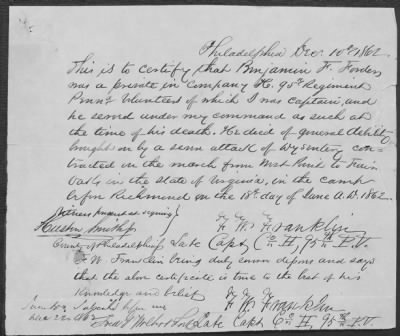 Philadelphia Dec. 10th 1862
This is to certify that Benjamin F. Forder
was a private in Company H. 95th Regiment
Penna Volunteers of which I was Captain, and
he served under my command as such at
the time of his death. He died of general debility
brought on by a severe attack of Dysentery con-
tracted on the march from West Point to Fair
Oaks in the State of Virginia, in the camp
before Richmond on the 18th day of June A.D. 1862.
Witness present at signing
H. W. Franklin
Late Capt Co. H, 95th P.V.
County of Philadelphia ss
H W Franklin being duly sworn deposes and says
that the above certificate is true to the best of his
knowledge and belief
H. W. Franklin
Sworn to & subscribed before me
Dec 1862
Late Capt Co H, 95th P.V.